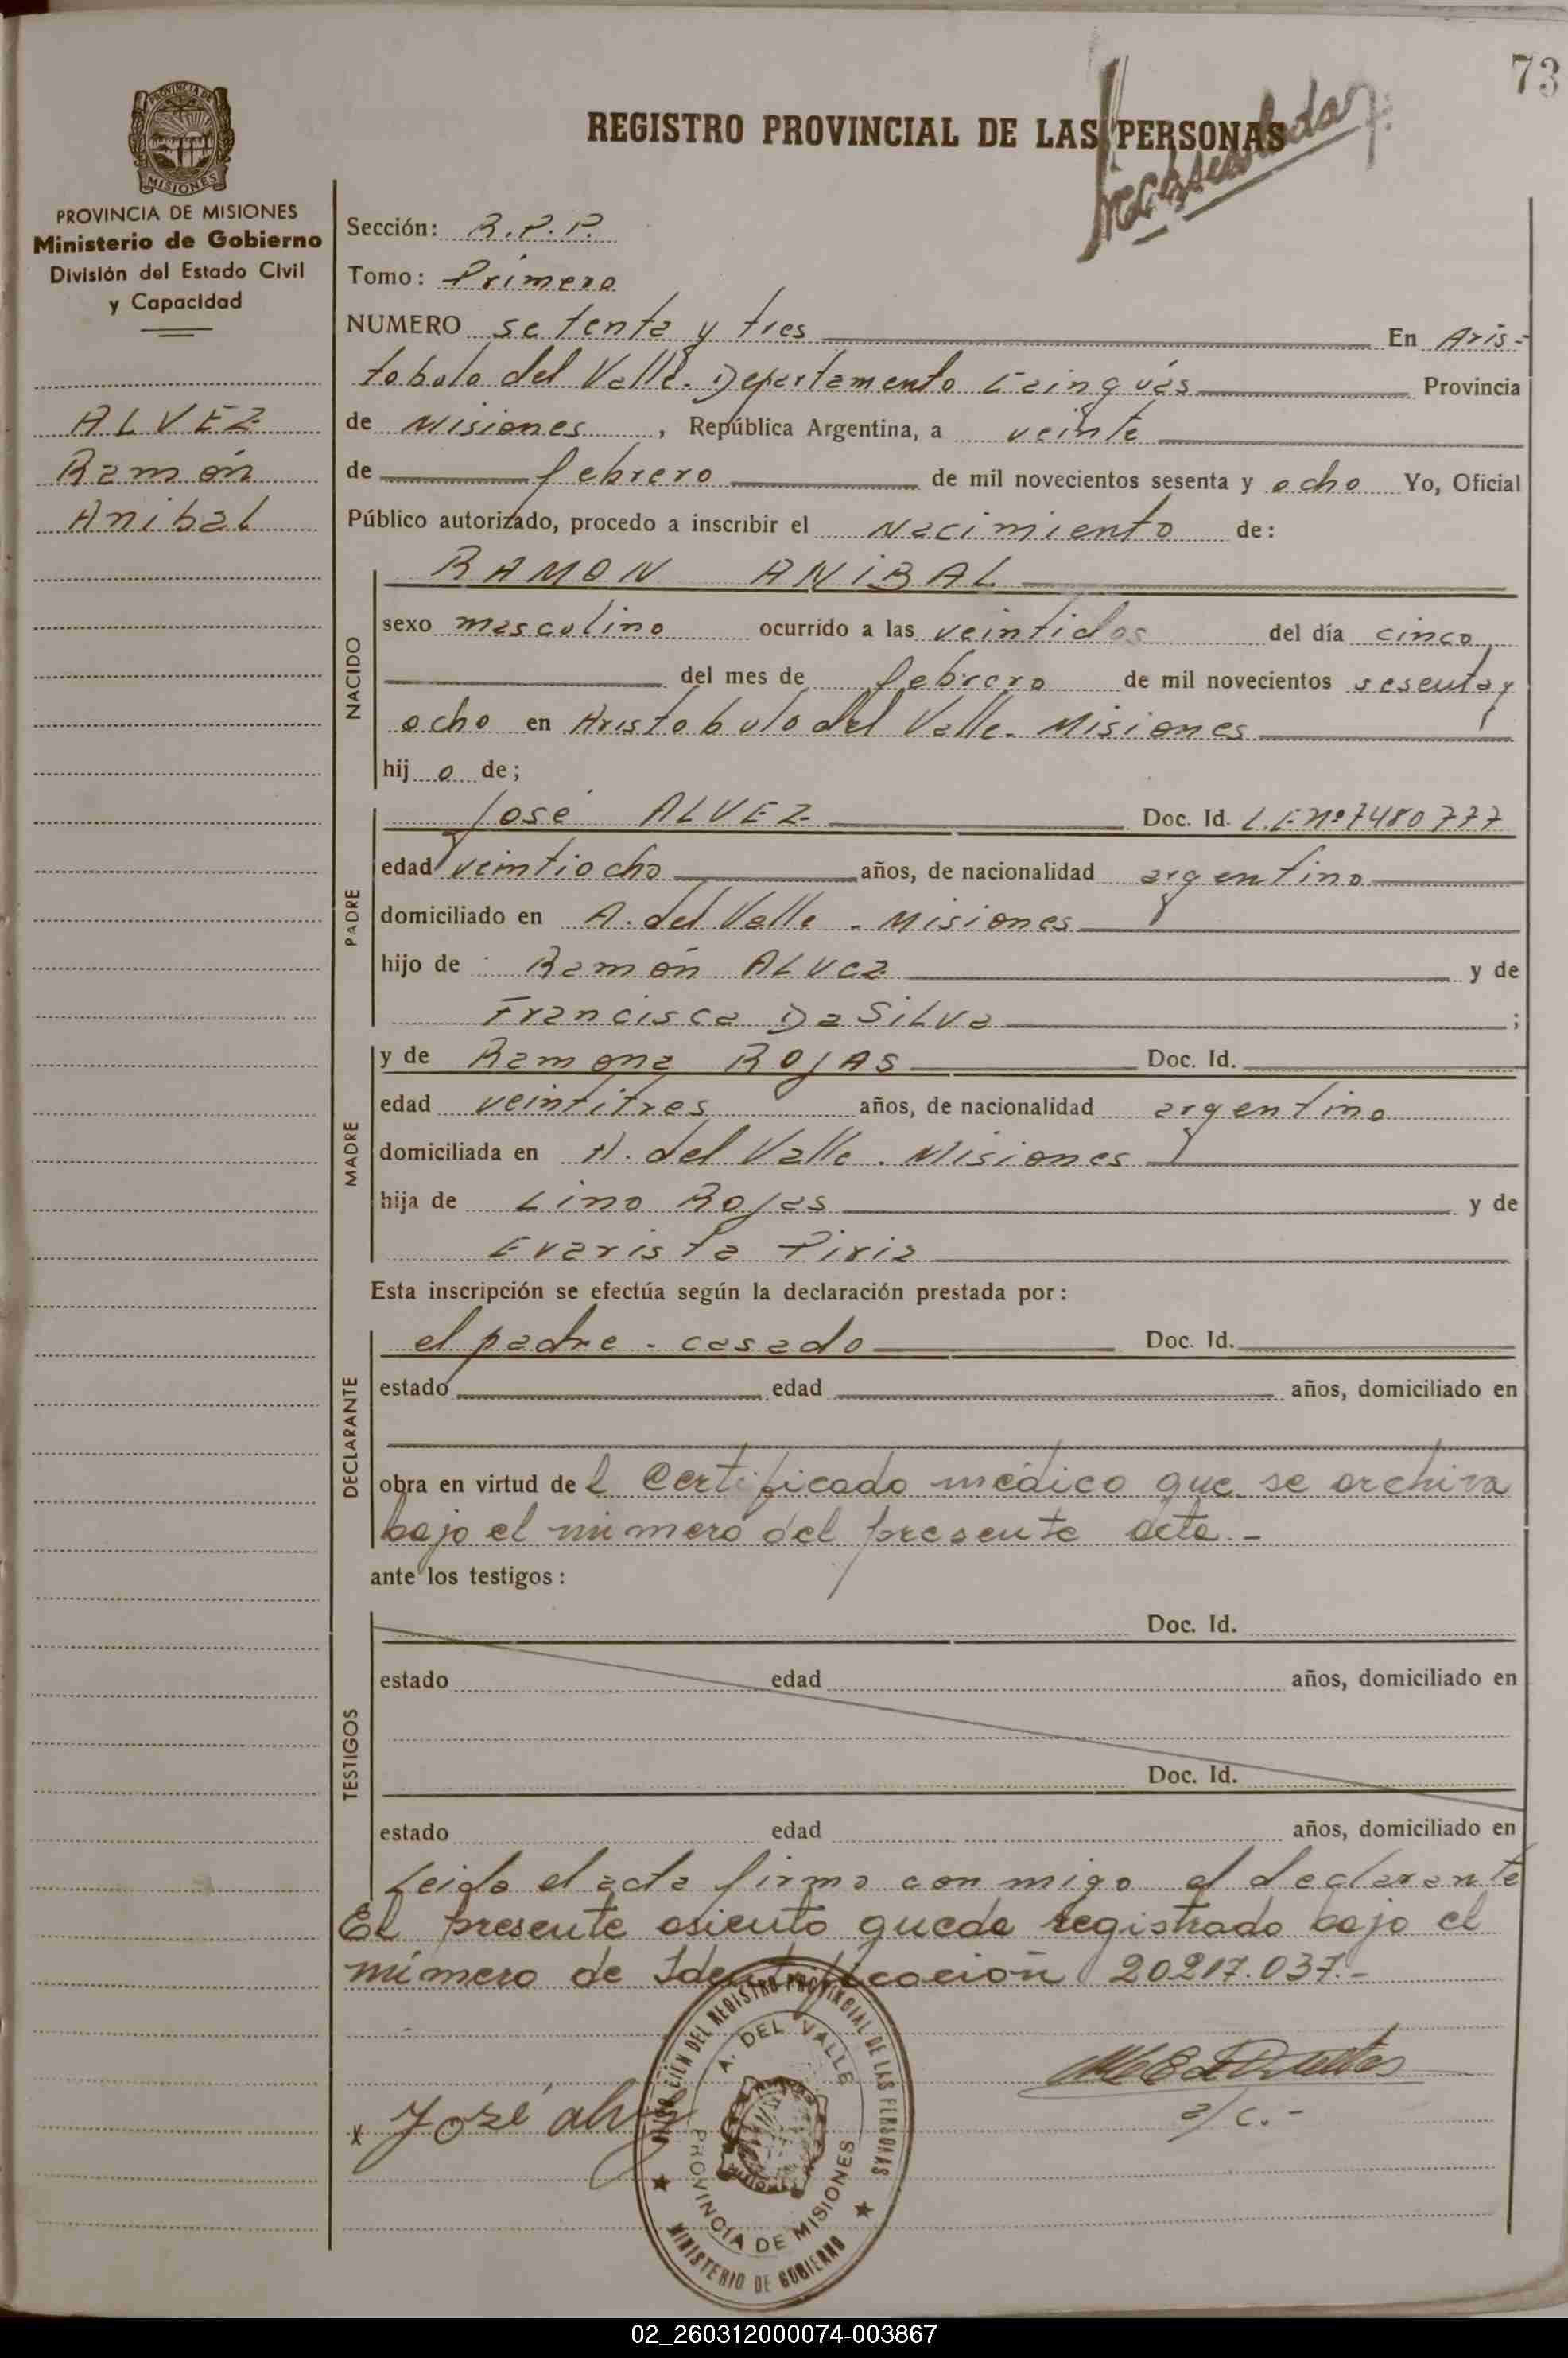 73
REGISTRO PROVINCIAL DE LAS PERSONAS
PROVINCIA DE MISIONES
Ministerio de Gobierno
División del Estado Civil
y Capacidad
ALVEZ
Ramón
Anibal
Sección: R.P.P.
Tomo: Primero
NUMERO setenta y tres En Aris-
tobulo del Valle. Departamento Cainguás Provincia
de Misiones, República Argentina, a veinte
de febrero de mil novecientos sesenta y ocho Yo, Oficial
Público autorizado, procedo a inscribir el Nacimiento de:
NACIDO
RAMON ANIBAL
sexo masculino ocurrido a las veintidos del día cinco
del mes de febrero de mil novecientos sesenta y
ocho en Aristobulo del Valle. Misiones
hij o de;
PADRE
José ALVEZ Doc. Id. L.E.Nº 7480777
edad veintiocho años, de nacionalidad argentino
domiciliado en A. del Valle - Misiones
hijo de Ramón ALVez
y de
Francisca Da SiLVa ;
MADRE
y de Ramona ROJAS Doc. Id.
edad veintitres años, de nacionalidad argentino
domiciliada en A. del Valle. Misiones
hija de Lino Rojas y de
Evarista Piris
Esta inscripción se efectúa según la declaración prestada por:
DECLARANTE
el padre - casado Doc. Id.
estado edad años, domiciliado en
obra en virtud de l Certificado médico que se archiva
bajo el número del presente acta.-
ante los testigos:
TESTIGOS
Doc. Id.
estado edad años, domiciliado en
Doc. Id.
estado edad años, domiciliado en
Leida el acta firma con migo el declarante
El presente asiento queda registrado bajo el
número de Identificación 20217.037.-
José
a/c.-
DEL REGISTRO PROVINCIAL DE LAS PERSONAS
A. DEL VALLE
PROVINCIA DE MISIONES
MINISTERIO DE GOBIERNO
02_260312000074-003867